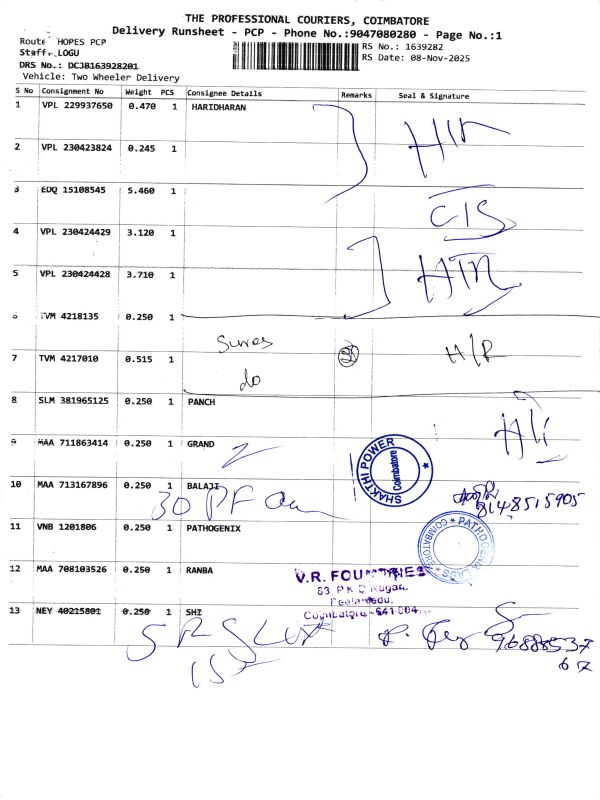 THE PROFESSIONAL COURIERS, COIMBATORE
Delivery Runsheet - PCP - Phone No.:9047080280 - Page No.:1
Route HOPES PCP
RS No.: 1639282
Staff LOGU
RS Date: 08-Nov-2025
DRS No.: DCJB163928201
Vehicle: Two Wheeler Delivery
S No Consignment No Weight PCS Consignee Details Remarks Seal & Signature
1 VPL 229937650 0.470 1 HARIDHARAN
2 VPL 230423824 0.245 1
3 EDQ 15108545 5.460 1
CIS
4 VPL 230424429 3.120 1
5 VPL 230424428 3.710 1
6 TVM 4218135 0.250 1
Sures
H/R
7 TVM 4217010 0.515 1
do
8 SLM 381965125 0.250 1 PANCH
9 MAA 711863414 0.250 1 GRAND
SHAKTHI POWER
Coimbatore
10 MAA 713167896 0.250 1 BALAJI
30 PF
8148515905
11 VNB 1201806 0.250 1 PATHOGENIX
PATHOGENIX LABS
COIMBATORE
12 MAA 708103526 0.250 1 RANBA
V.R. FOUNDRIES
83, P K D Nagar,
Peelamedu,
Coimbatore - 641 004
13 NEY 40215801 0.250 1 SHI
96888537
67